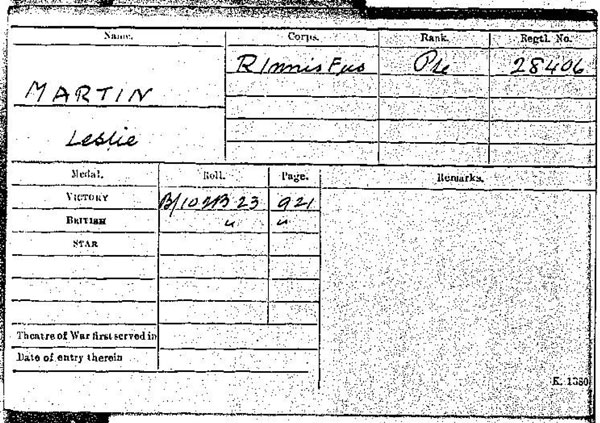 Name. Corps. Rank. Regtl. No.
R Innis Fus Pte 28406
MARTIN
Leslie
Medal. Roll. Page. Remarks.
VICTORY B/102B 23 921
BRITISH " "
STAR
Theatre of War first served in
Date of entry therein
K. 1380